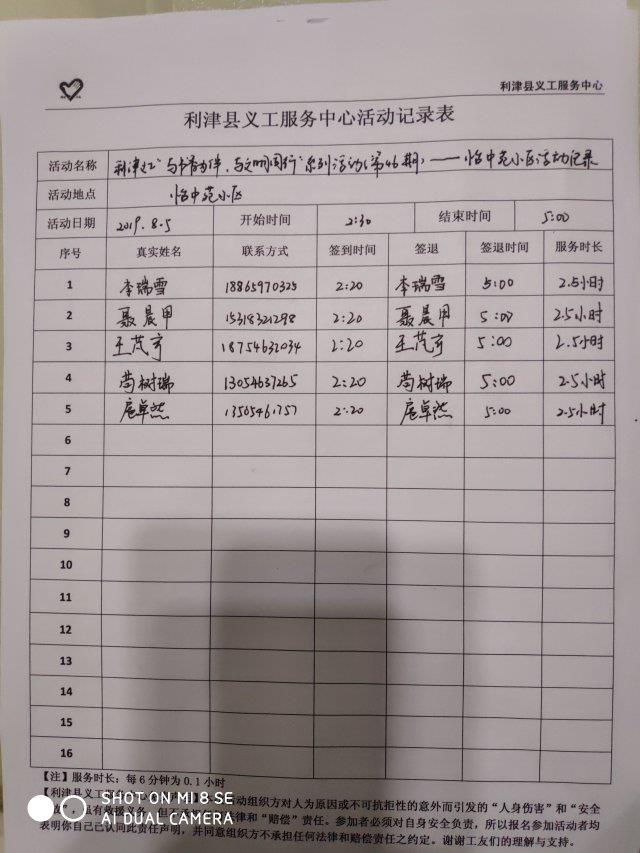 利津县义工服务中心
利津县义工服务中心活动记录表
活动名称 利津义工"与书香为伴,与文明同行"系列活动(第46期)——怡中苑小区活动记录
活动地点 怡中苑小区
活动日期 2019.8.5 开始时间 2:30 结束时间 5:00
序号 真实姓名 联系方式 签到时间 签退 签退时间 服务时长
1 李瑞雪 18865970325 2:20 李瑞雪 5:00 2.5小时
2 聂晨甲 15318321298 2:20 聂晨甲 5:00 2.5小时
3 王茂宇 18754632034 2:20 王茂宇 5:00 2.5小时
4 苟树瑞 13054637265 2:20 苟树瑞 5:00 2.5小时
5 扈卓然 13565461757 2:20 扈卓然 5:00 2.5小时
6
7
8
9
10
11
12
13
14
15
16
【注】服务时长:每6分钟为0.1小时
【利津县义工服务中心 动组织方对人为原因或不可抗拒性的意外而引发的"人身伤害"和"安全
有救援义务,但不承担 法律和"赔偿"责任。参加者必须对自身安全负责,所以报名参加活动者均
表明你自己已认同此责任声明,并同意组织方不承担任何法律和赔偿责任之约定。谢谢工友们的理解与支持。
SHOT ON MI 8 SE
AI DUAL CAMERA